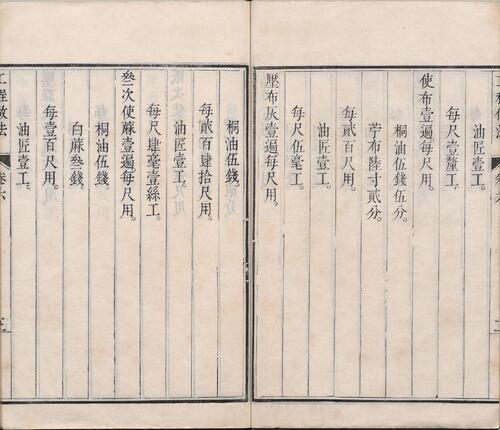 油匠壹工。
每尺壹釐工。
使布壹遍每尺用。
桐油伍錢伍分。
苧布陸寸貳分。
每貳百尺用。
油匠壹工。
每尺伍毫工。
壓布灰壹遍每尺用。
桐油伍錢。
每貳百肆拾尺用。
油匠壹工。
每尺肆毫壹絲工。
叁次使蔴壹遍每尺用。
桐油伍錢。
白蔴叁錢。
每壹百尺用。
油匠壹工。
工程做法
卷六
三